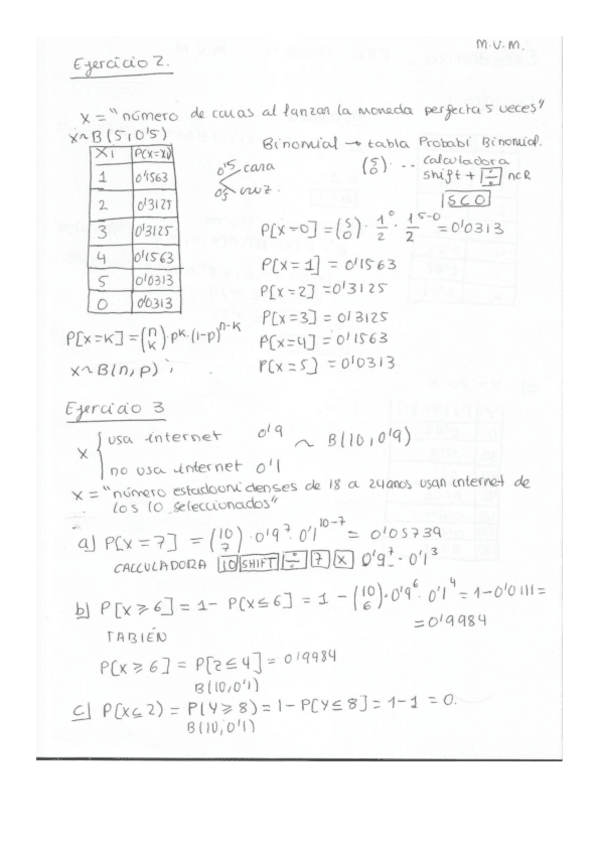 M.V.M.
Ejercicio 2.
X = "número de caras al lanzar la moneda perfecta 5 veces"
X~B(5,0'5)
Binomial → tabla Probabi Binomial.
Xi P(X=xi)
1 0'1563
2 0'3125
3 0'3125
4 0'1563
5 0'0313
0 0'0313
0'5 cara
0'5 cruz.
(5 0) ... calculadora
shift + ÷ nCR
5C0
P[X=0] = (5 0) · 1/2^0 · 1/2^5-0 = 0'0313
P[X=1] = 0'1563
P[X=2] = 0'3125
P[X=3] = 0'3125
P[X=4] = 0'1563
P[X=5] = 0'0313
P[X=K] = (n K) pK·(1-p)^n-K
X~B(n,p)
Ejercicio 3
X { usa internet 0'9 ~ B(10,0'9)
no usa internet 0'1
X = "número estadounidenses de 18 a 24 anos usan internet de
los 10 seleccionados"
a) P[X=7] = (10 7) · 0'9^7 · 0'1^10-7 = 0'05739
CALCULADORA 10 SHIFT ÷ 7 X 0'9^7 · 0'1^3
b) P[X⩾6] = 1- P[X≤6] = 1 - (10 6) · 0'9^6 · 0'1^4 = 1-0'0111 =
= 0'9984
TABIÉN
P[X⩾6] = P[Z≤4] = 0'9984
B(10,0'1)
c) P(X≤2) = P(Y⩾8) = 1-P[Y≤8] = 1-1 = 0.
B(10,0'1)